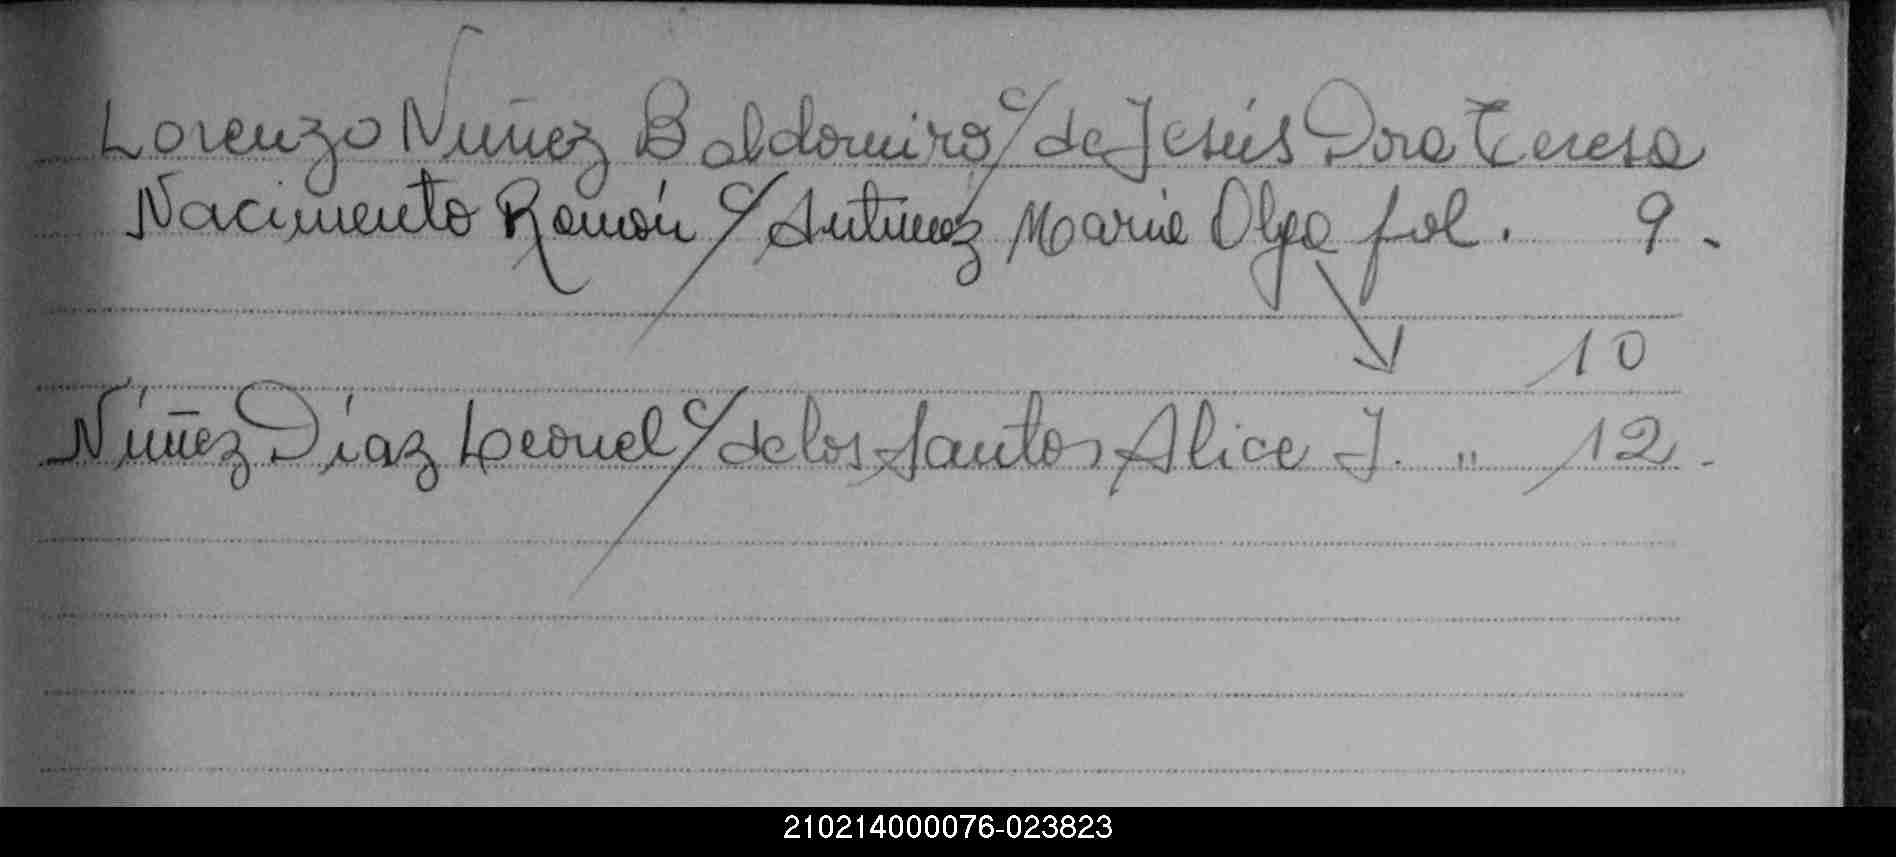 Lorenzo Nuñez Baldomiro c/ de Jesús Dora Teresa
Nacimento Ramón c/ Antunez Maria Olga fol. 9.
10
Núñez Díaz Leonel c/ de los Santos Alice J. " 12.
210214000076-023823